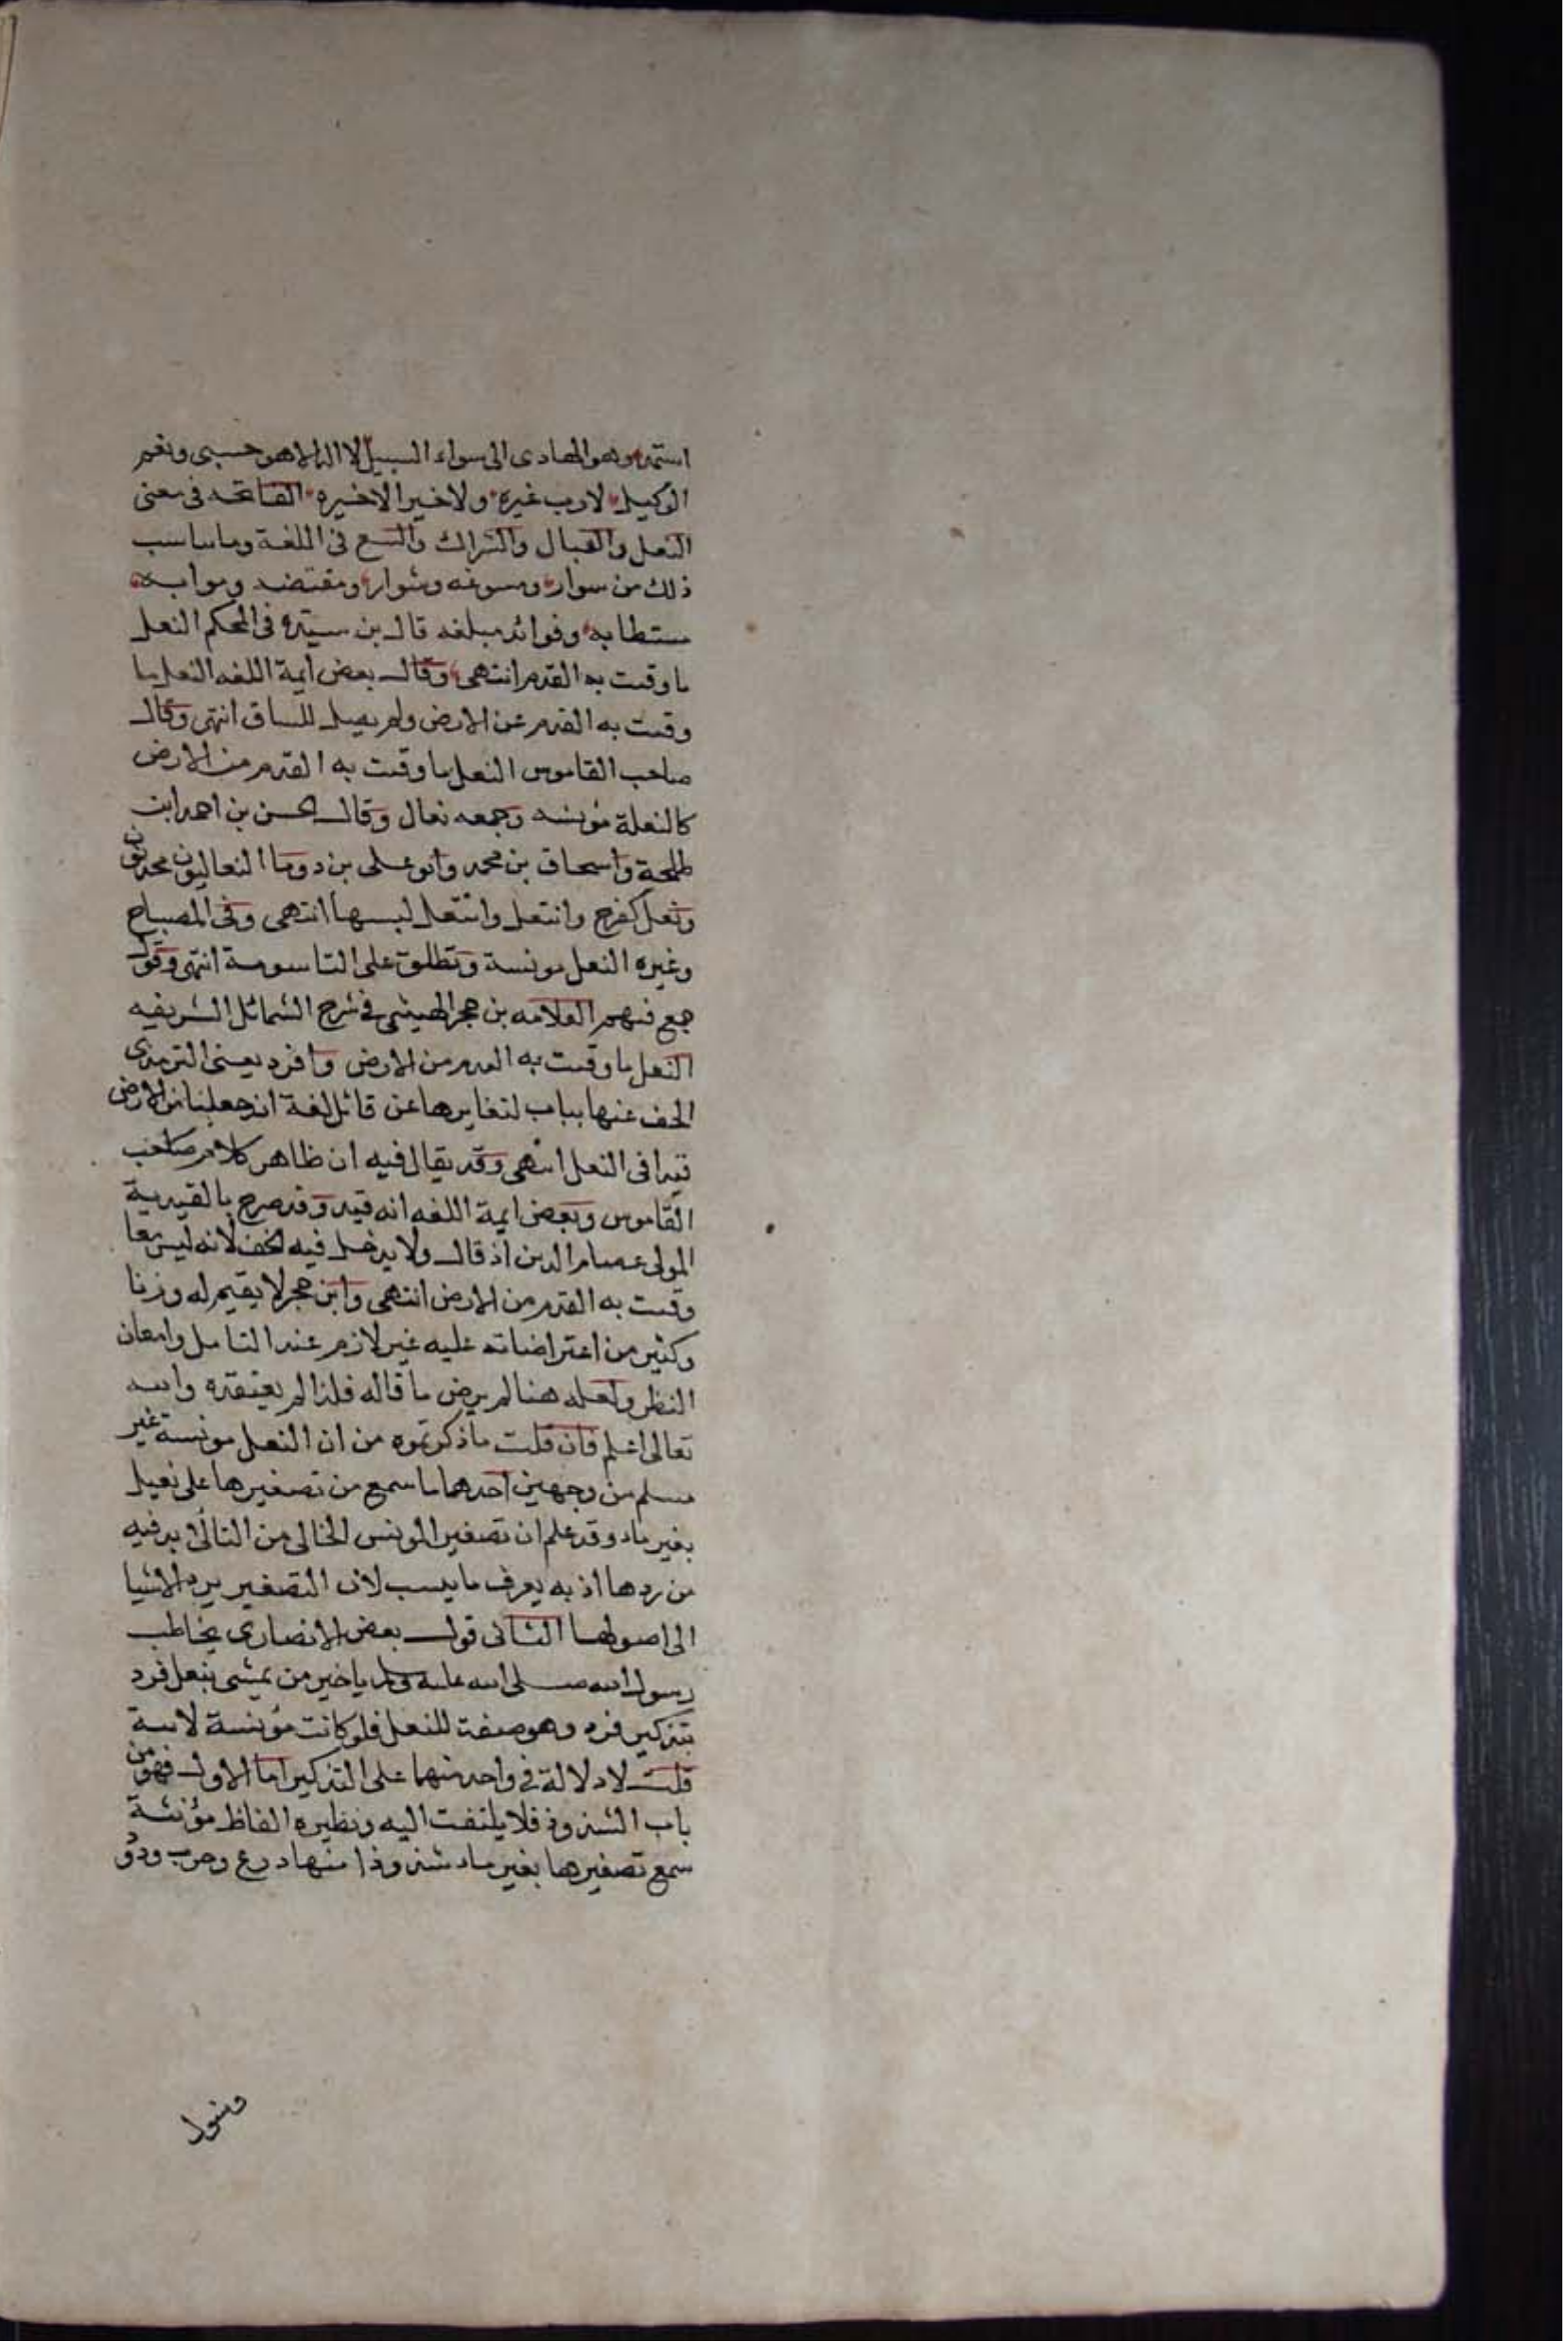 استمد وهو الهادى الى سواء السبيل لا اله الا هو حسبى ونعم
الوكيل لا رب غيره ولا خير الا خيره الفاتحه فى معنى
النعل والقبال والشراك والشسع فى اللغة وما ساسب
ذلك من سوار ومسوغه وشوار ومقتضد وموابه
مستطابه وفوائد مبلغه قال بن سيده فى المحكم النعل
ما وقيت به القدم انتهى وقال بعض ايمة اللغه النعل ما
وقيت به القدم عن الارض ولم يصل للساق انتهى وقال
صاحب القاموس النعل ما وقيت به القدم من الارض
كالنعلة مؤنثه وجمعه نعال وقال الحسن بن احمد ابن
طلحة واسحاق بن محمد وابو على بن دوما النعاليون محدثون
ونعل كفرح وانتعل وانتعل لبسها انتهى وفى المصباح
وغيره النعل مونسة وتطلق على التاسومة انتهى وقول
جمع منهم العلامه بن حجر الهيثمى فى شرح الشمائل الشريفه
النعل ما وقيت به القدم من الارض وافرد يعنى الترمذى
الخف عنها بباب لتغايرها عن قائل لغة ان جعلنا من الارض
قيدا فى النعل انتهى وقد يقال فيه ان ظاهر كلام صاحب
القاموس وبعض ايمة اللغه انه قيد وقد صرح بالقيدية
المولى عصام الدين اذ قال ولا يدخل فيه الخف لانه ليس مما
وقيت به القدم من الارض انتهى وابن حجر لا يقيم له وزنا
وكثير من اعتراضاته عليه غير لازم عند التامل وامعان
النظر ولعله هنا لم يرض ما قاله فلذا لم يعتقده والله
تعالى اعلم فان قلت ما ذكرتموه من ان النعل مونسة غير
مسلم من وجهين احدهما ما سمع من تصغيرها على نعيل
بغير هاء وقد علم ان تصغير المونس الخالى من التا لا بد فيه
من ردها اذ به يعرف ما ينسب لان التصغير يرد الاشيا
الى اصولها الثانى قول بعض الانصارى يخاطب
رسول الله صلى الله عليه وسلم يا خير من يمشى بنعل فرد
بتذكير فرد وهو صفة للنعل فلو كانت مؤنسة لانسه
قلت لا دلالة فى واحد منهما على التذكير اما الاول فهو من
باب الشذوذ فلا يلتفت اليه ونظيره الفاظ مؤنثة
سمع تصغيرها بغير هاء شذوذا منها درع وحرب وذو